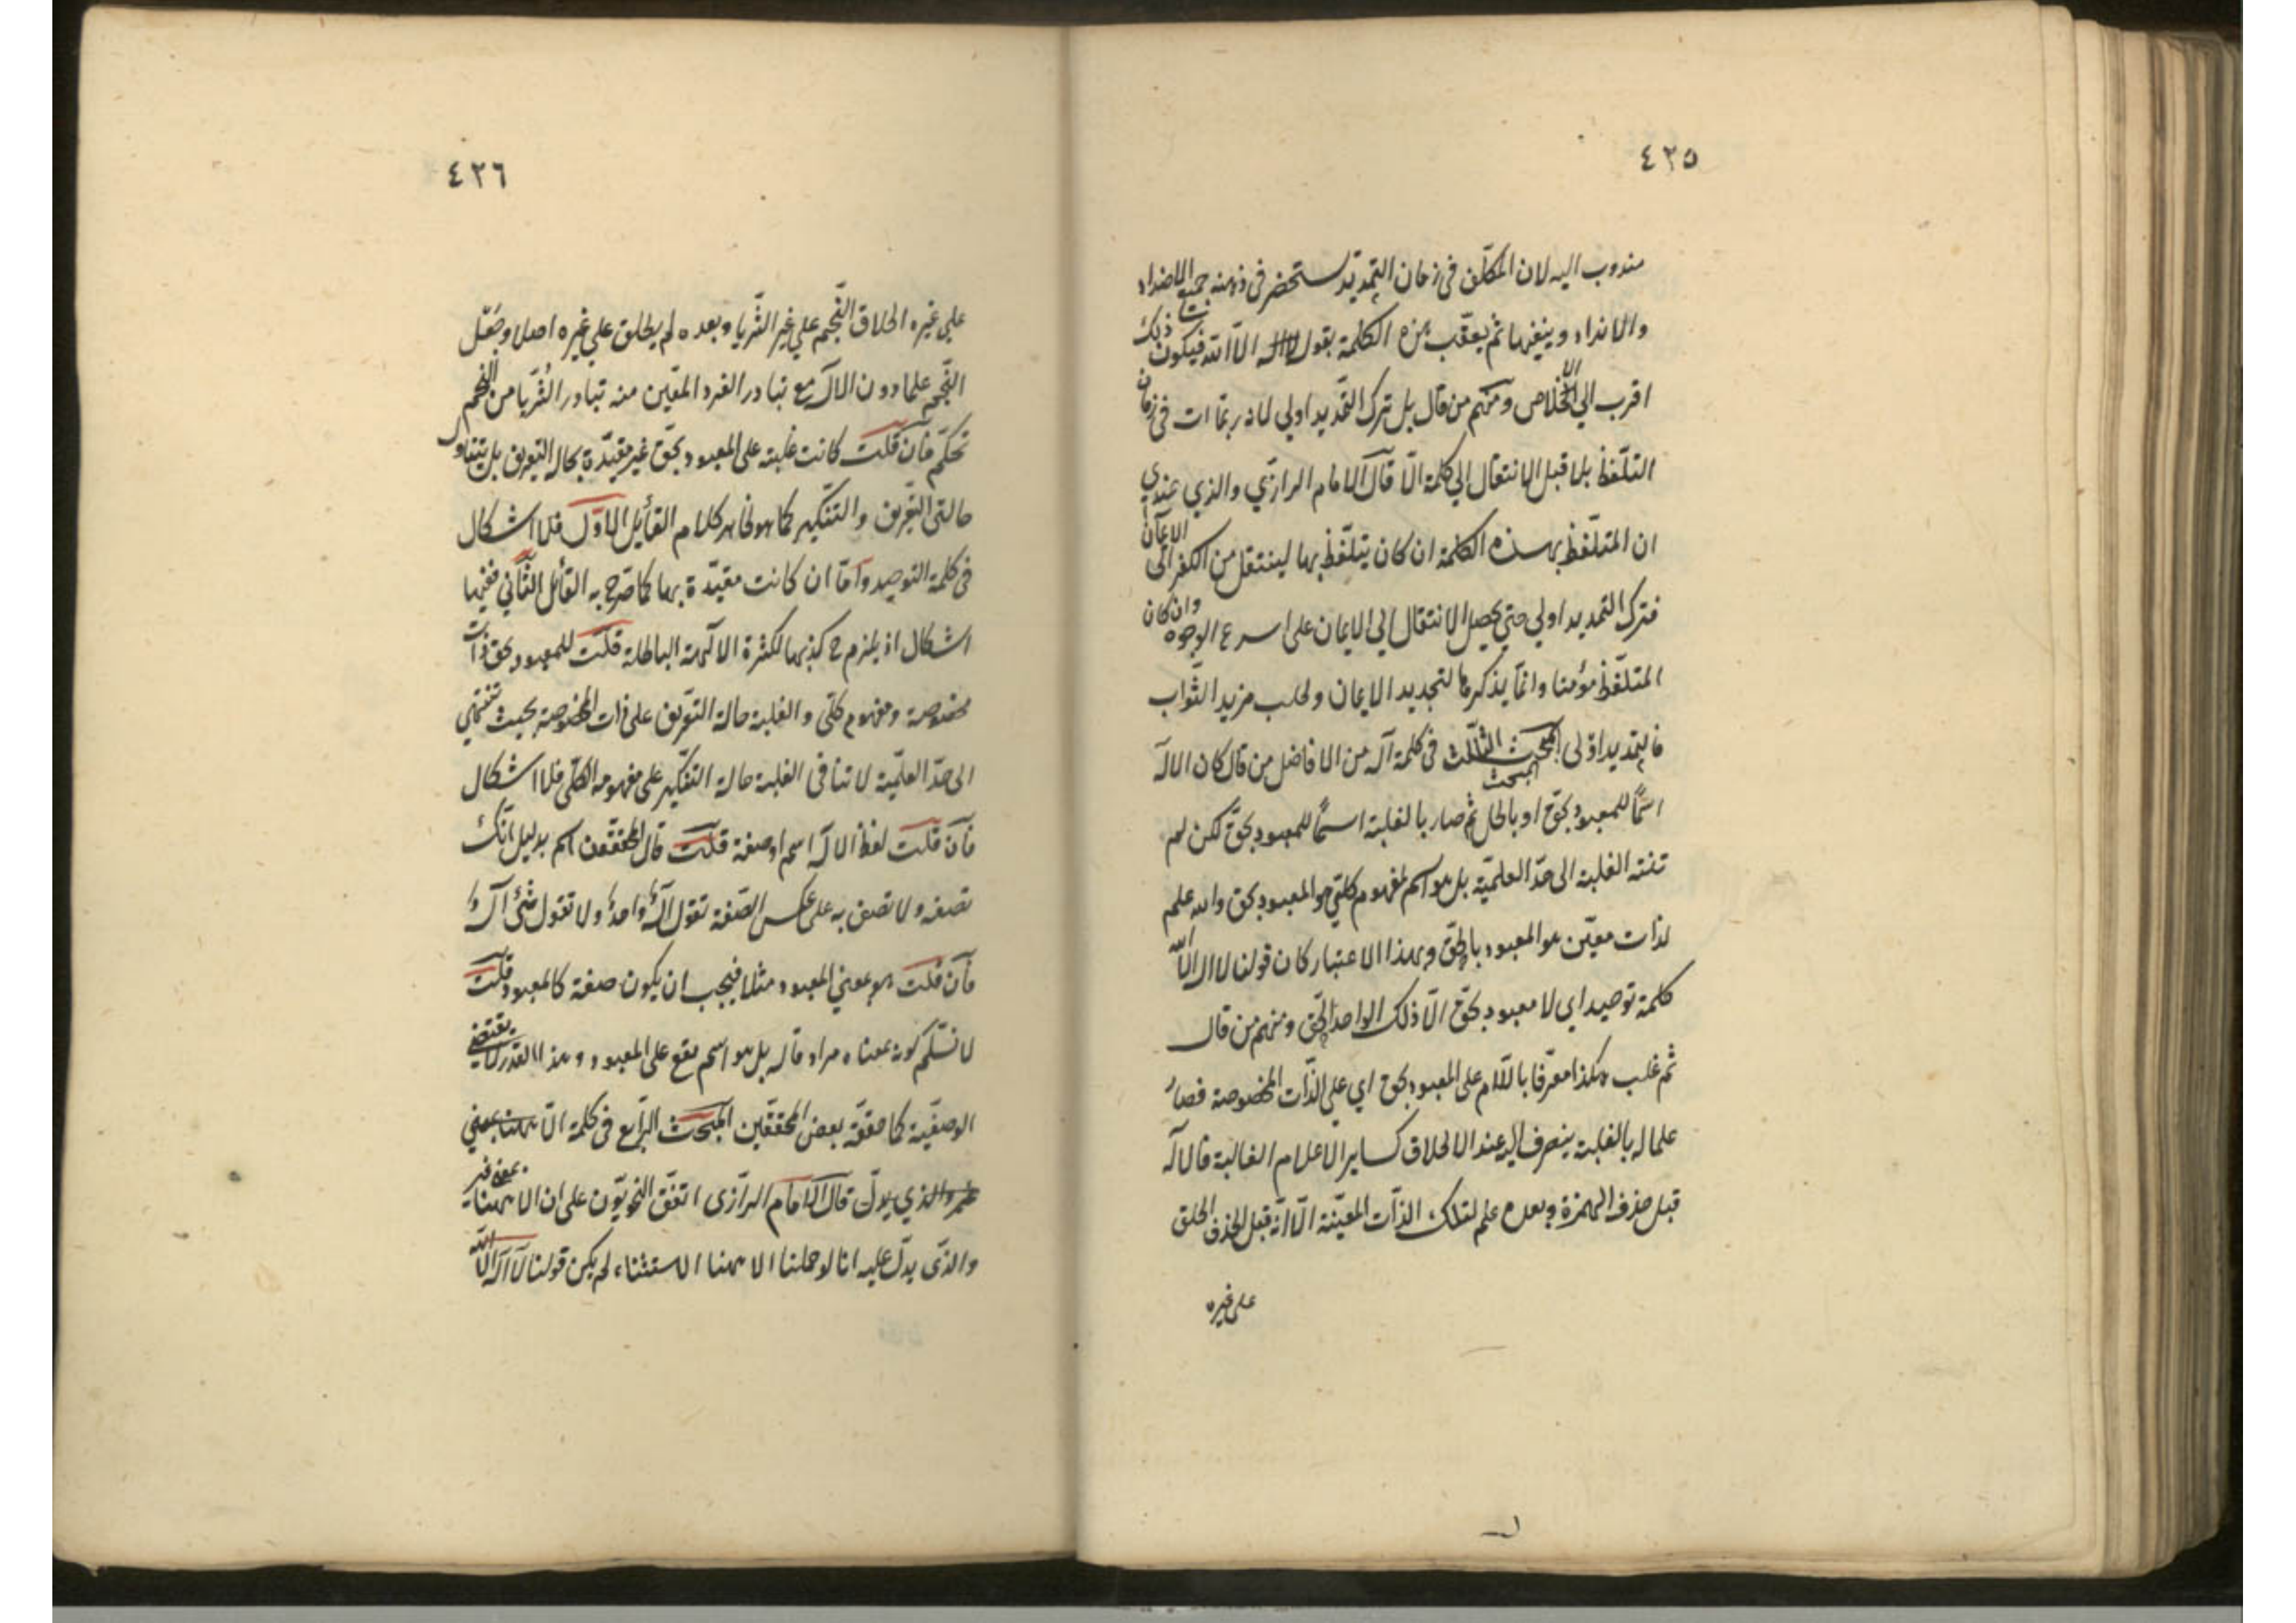 ٤٢٥
مندوب اليه لان المكلّف فى زمان التمديد يستحضر فى ذهنه جميع الاضداد
والانداد وينفيها ثم يعقّب هذه الكلمة بقول الا الله فيكون ذلك
اقرب الي الاخلاص ومنهم من قال بل ترك التمديد اولي لانه ربّما مات فى زمان
التلفّظ بلا قبل الانتقال الي كلمة الّا قال الامام الرازي والذي عندي
ان المتلفّظ بهذه الكلمة ان كان يتلفّظ بها لينتقل من الكفر الى الايمان
فترك التمديد اولي حتي يحصل الانتقال الي الايمان على اسرع الوجوه وان كان
المتلفّظ مؤمنا وانّما يذكرها لتجديد الايمان ولطلب مزيد الثّواب
فالتمديد اولى المبحث الثالث فى كلمة آله من الافاضل من قال كان الاله
اسمًا للمعبود بحقّ او باطل ثم صار بالغلبة اسمًا للمعبود بحقّ لكن لم
تنته الغلبة الى حدّ العلميّة بل هو اسم لمفهوم كلّي هو المعبود بحق والله علم
لذات معيّن هو المعبود بالحقّ وبهذا الاعتبار كان قولنا لا اله الا الله
كلمة توحيد اى لا معبود بحقّ الّا ذلك الواحد الحقّ ومنهم من قال
ثم غلب هكذا معرّفا باللّام على المعبود بحق اي علي الذّات المخصوصة فصار
علما له بالغلبة ينصرف اليه عند الاطلاق كساير الاعلام الغالبة فالاله
قبل حذف الهمزة وبعده علم لتلك الذّات المعيّنة الّا انّه قبل الحذف اطلق
على غيره
٤٢٦
علي غيره اطلاق النّجم علي غير الثّريا وبعده لم يطلق علي غيره اصلا وجعل
النّجم علما دون الاله مع تبادر الفرد المعيّن منه تبادر الثّريا من النجم
تحكّم فان قلت كانت غلبته على المعبود بحقّ غير مقيّدة بحال التعريف بل يتناول
حالتى التّعريف والتّنكير كما هو ظاهر كلام القايل الاوّل فلا اشكال
فى كلمة التوحيد وامّا ان كانت مقيّدة بها كما صّرح به القائل الثّاني ففيها
اشكال اذ يلزم ح كذبها لكثرة الالهة الباطلة قلت للمعبود بحق ذات
مخصوصة ومفهوم كلّى والغلبة حالة التّعريف على ذات المخصوصة بحيث تنتهي
الى حدّ العلميّة لا تنافى الغلبة حالة التنكير على مفهومه الكلّي فلا اشكال
فان قلت لفظ الاله اسم او صفة قلت قال المحققون اسم بدليل انّك
تصفه ولا تصف به على عكس الصّفة تقول الهٌ واحدٌ ولا تقول شئ اله
فان قلت هو بمعني المعبود مثلا فيجب ان يكون صفة كالمعبود قلت
لا نسلّم كونه بمعناه مرادفا له بل هو اسم يقع على المعبود وهذا القدر لا يقتضي
الوصفيّة كما حققه بعض المحققين المبحث الرّابع فى كلمة الّا ههنا بمعني
غير والذي يدلّ قال الامام الرّازى اتفق النحويّون على ان الا ههنا بمعنى غير
والذى يدلّ عليه انا لو حملنا الا ههنا الاستثناء لم يكن قولنا لا اله الا الله